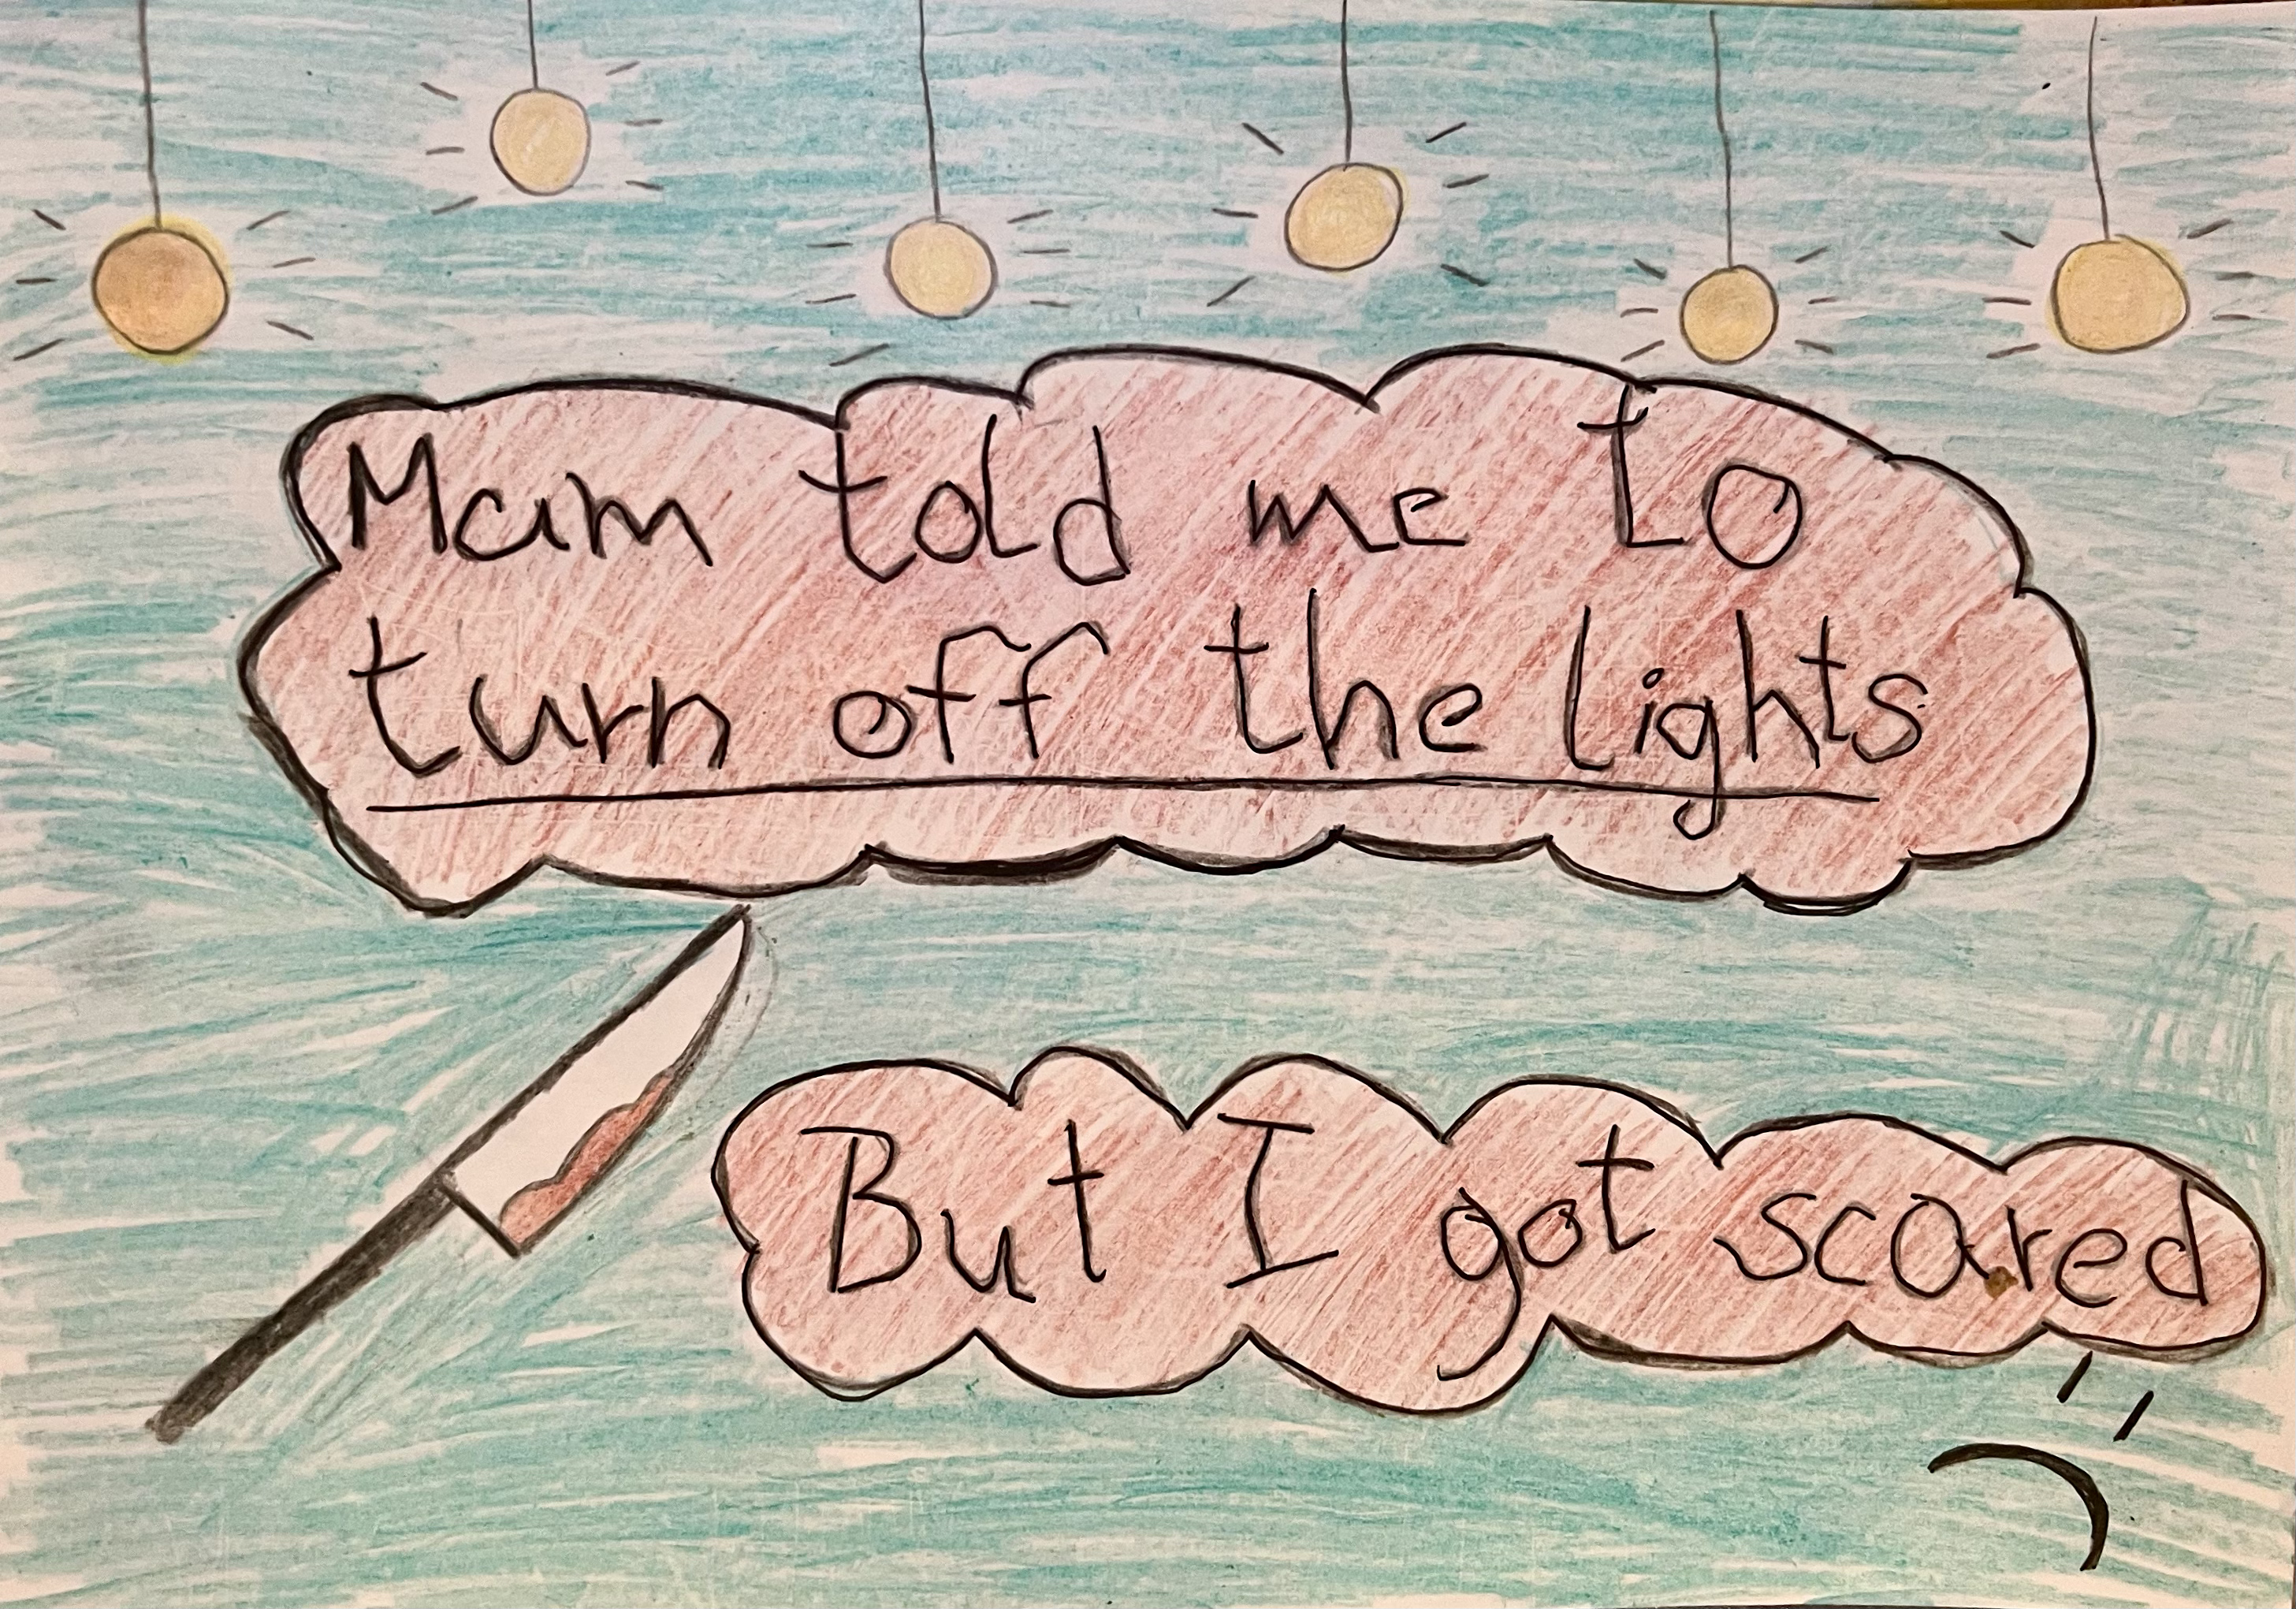 Mam told me to
turn off the lights
But I got scared